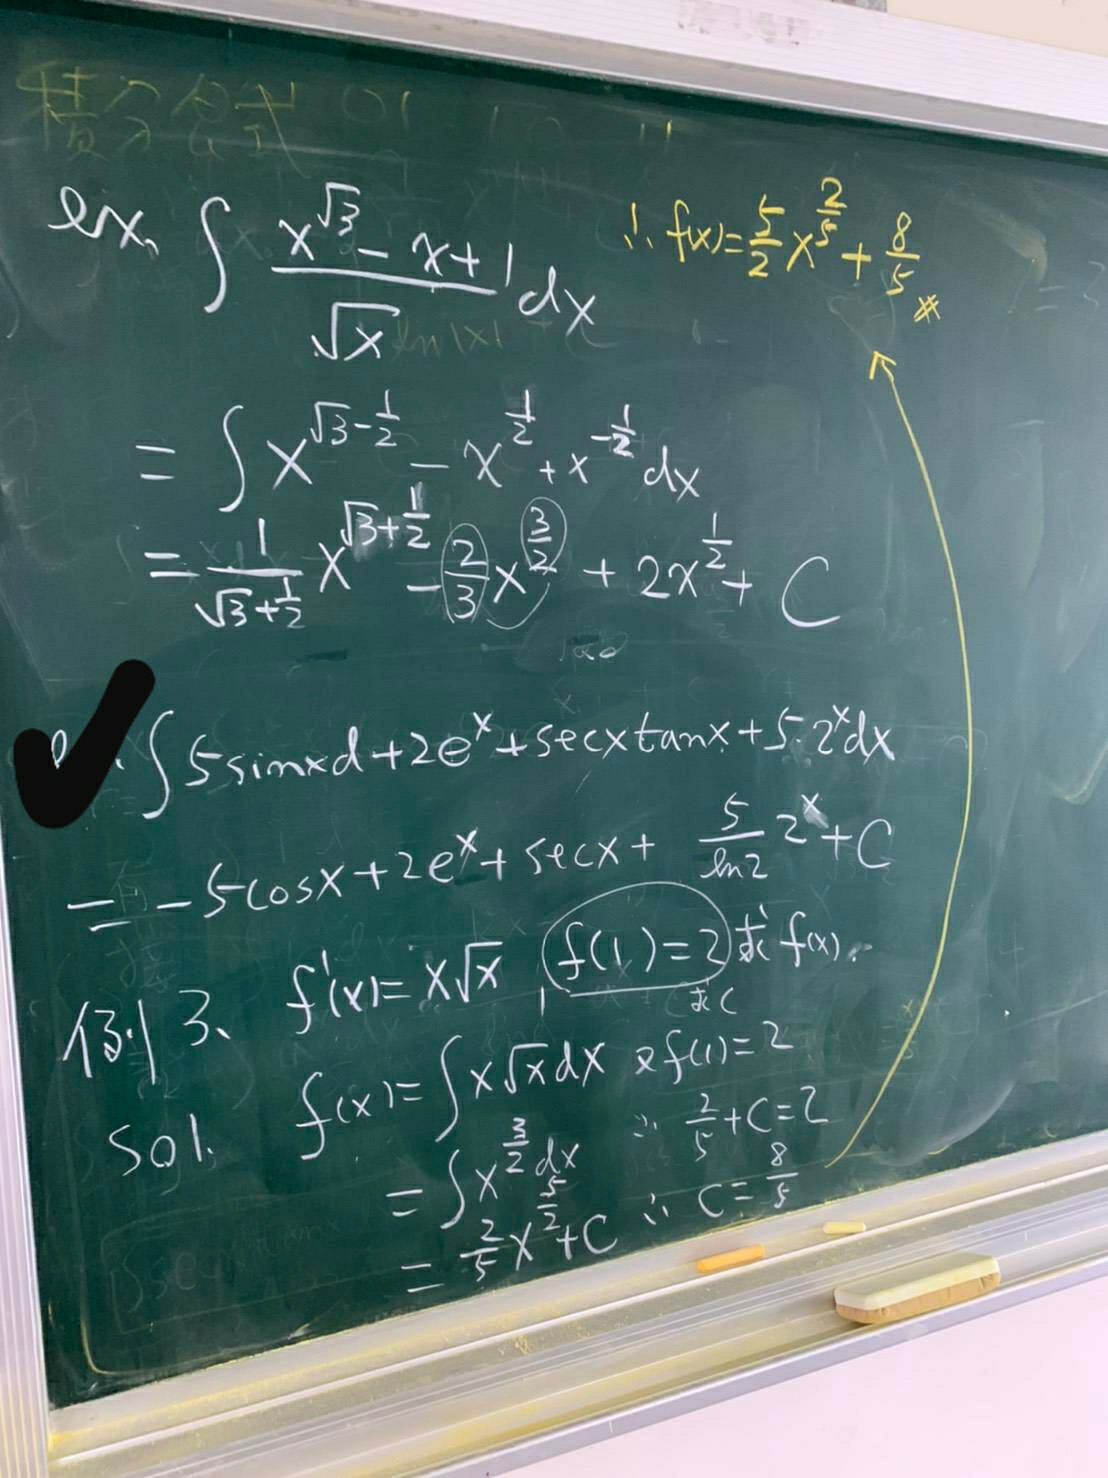 積分公式 01
ex. ∫ (x^√3 - x + 1)/√x dx
ln|x|
= ∫ x^(√3-1/2) - x^(1/2) + x^(-1/2) dx
= 1/(√3+1/2) x^(√3+1/2) - 2/3 x^(3/2) + 2x^(1/2) + C
∫ 5sinxd + 2e^x + secxtanx + 5·2^x dx
= -5cosx + 2e^x + secx + 5/ln2 2^x + C
例3、 f'(x) = x√x , f(1) = 2 求 f(x).
求C
sol. f(x) = ∫ x√x dx
= ∫ x^(3/2) dx
= 2/5 x^(5/2) + C
又f(1) = 2
∴ 2/5 + C = 2
∴ C = 8/5
∴ f(x) = 5/2 x^(2/5) + 8/5 #